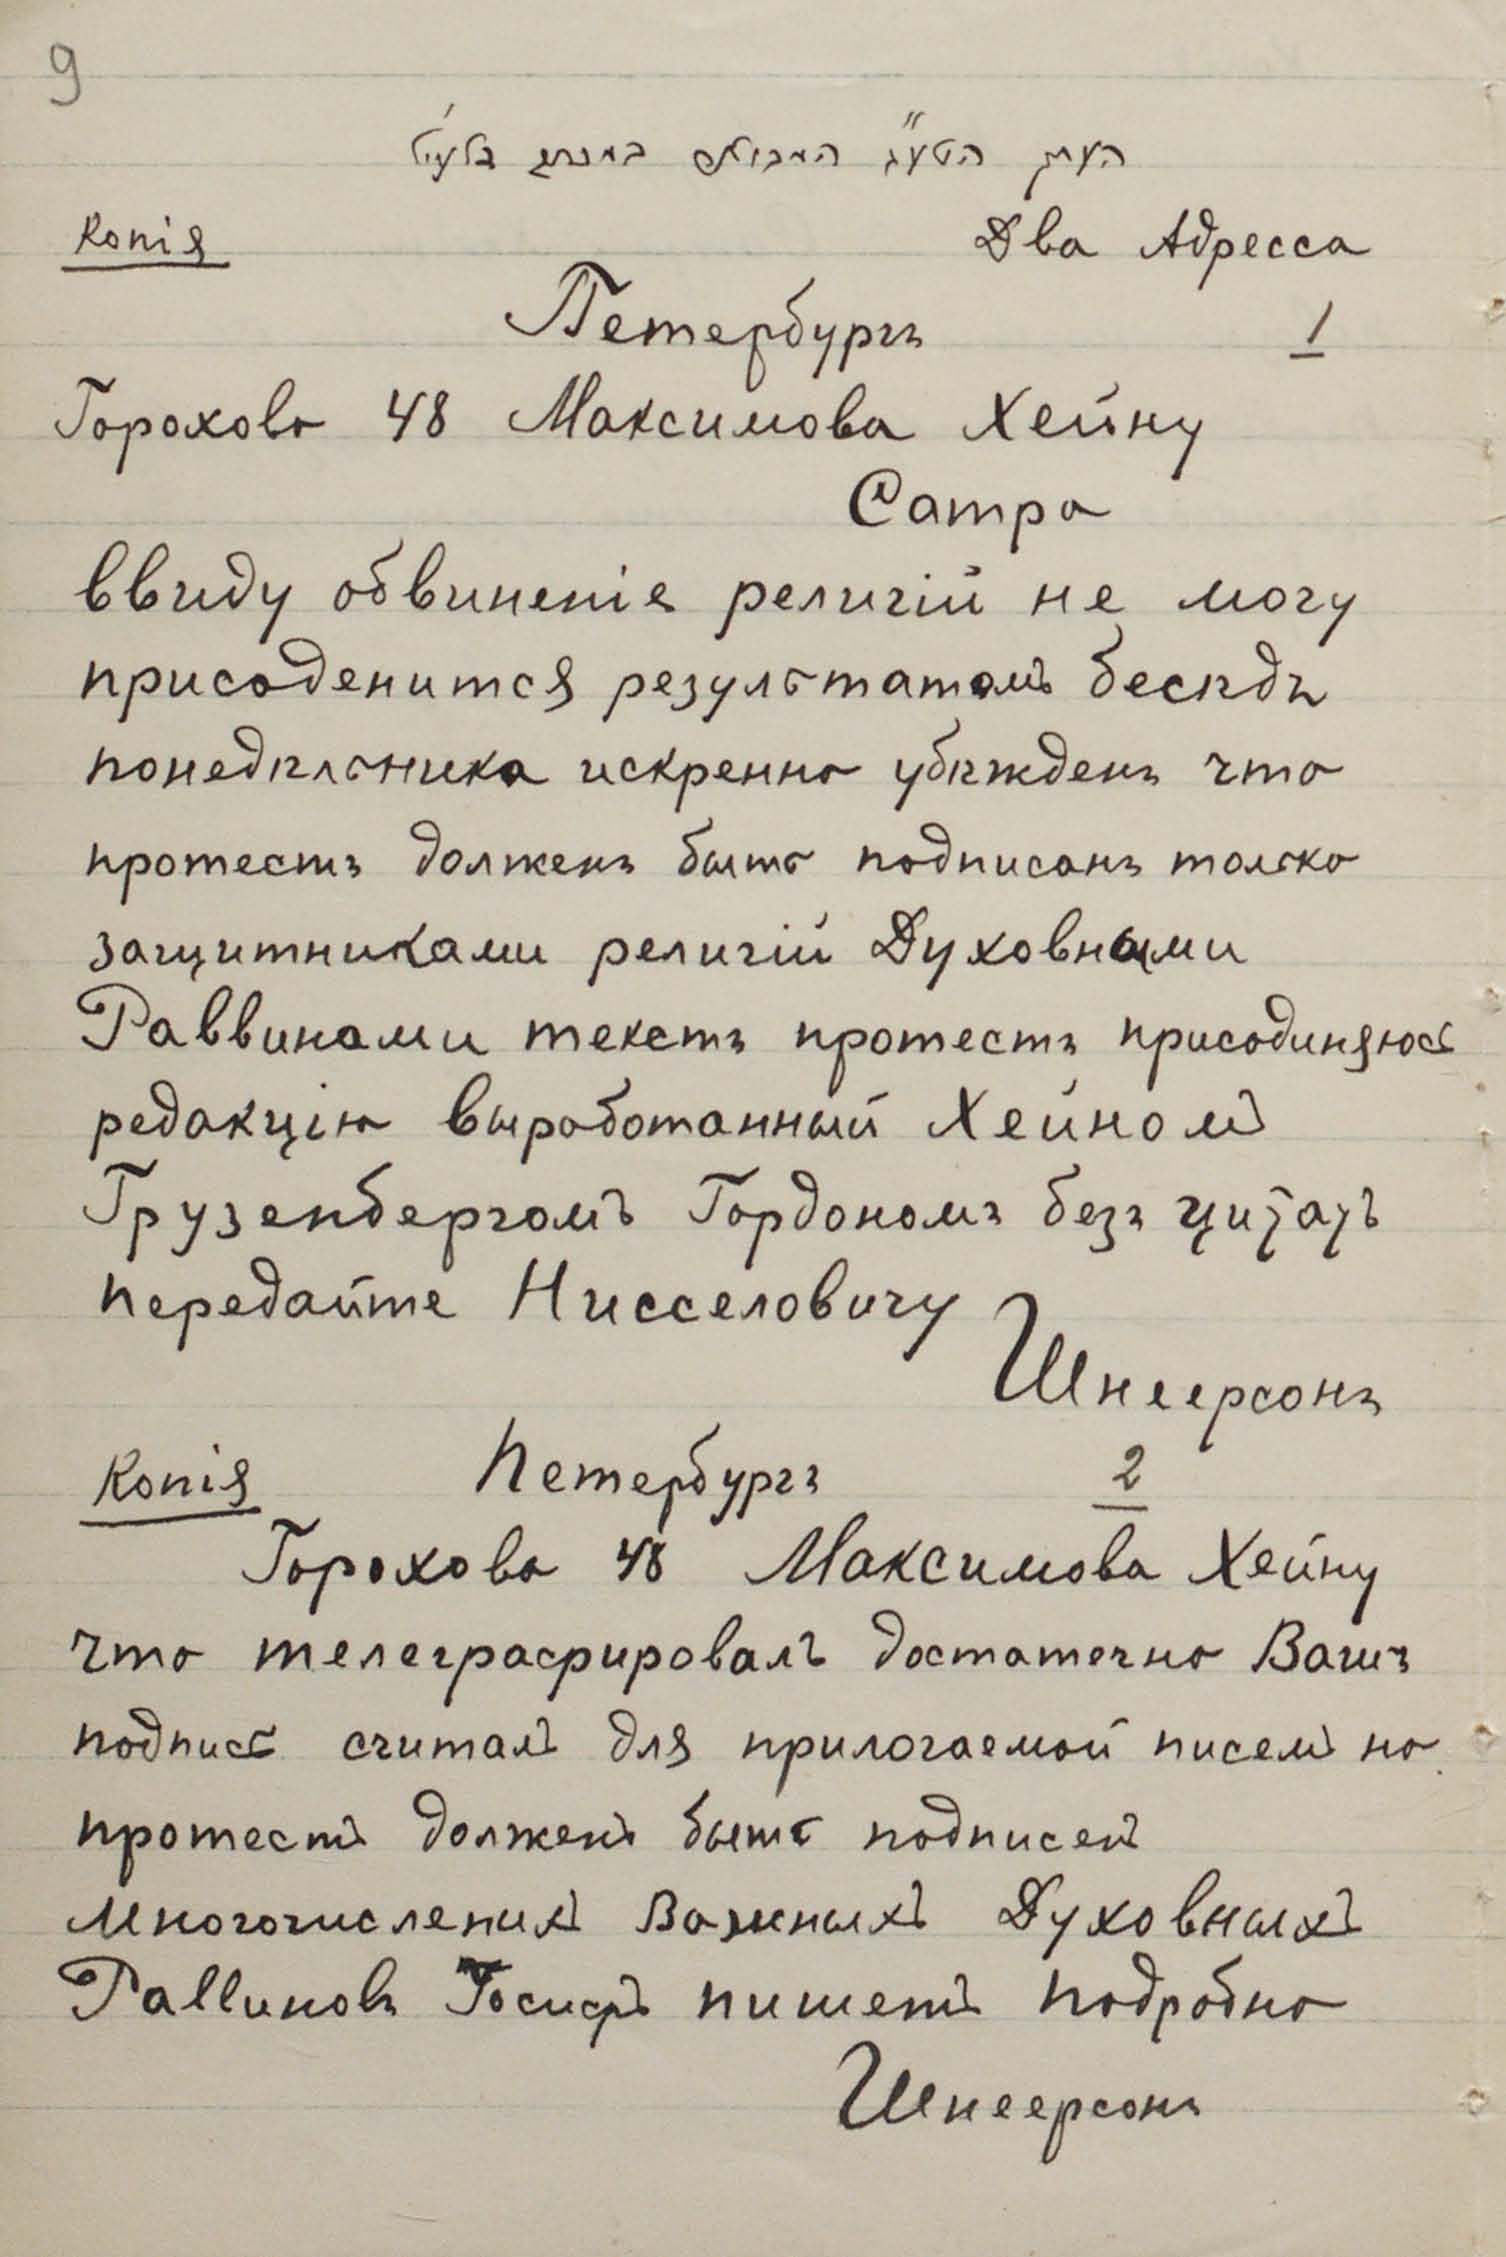 9
העתק הטע"ג המבואים במכתב בלעיל
Копія Два Адресса
Петербургъ 1
Горохово 48 Максимова Хейну
Сатра
ввиду обвиненія религій не могу
присоденится результатамъ бесѣдъ
понедѣльника искренно убѣжденъ что
протестъ долженъ быть подписанъ только
защитниками религій Духовными
Раввинами текстъ протестъ присодиняюсь
редакцію выработанный Хейномъ
Грузенбергомъ Гордономъ безъ цитатъ
передайте Нисселовичу
Шнеерсонъ
Копія Петербургъ 2
Горохово 48 Максимова Хейну
что телеграфировалъ достаточно Вашъ
подпись считалъ для прилогаемой писемъ но
протестъ долженъ быть подписей
многочисленихъ важныхъ Духовныхъ
Раввиновъ Іосифъ пишетъ подробно
Шнеерсонъ